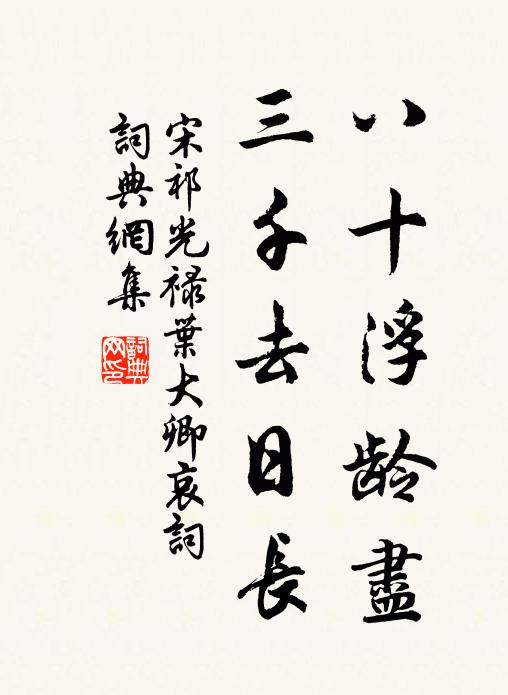 八十浮龄盡
三千去日長
宋祁光禄葉大卿哀詞
詞典網集
詞典网印